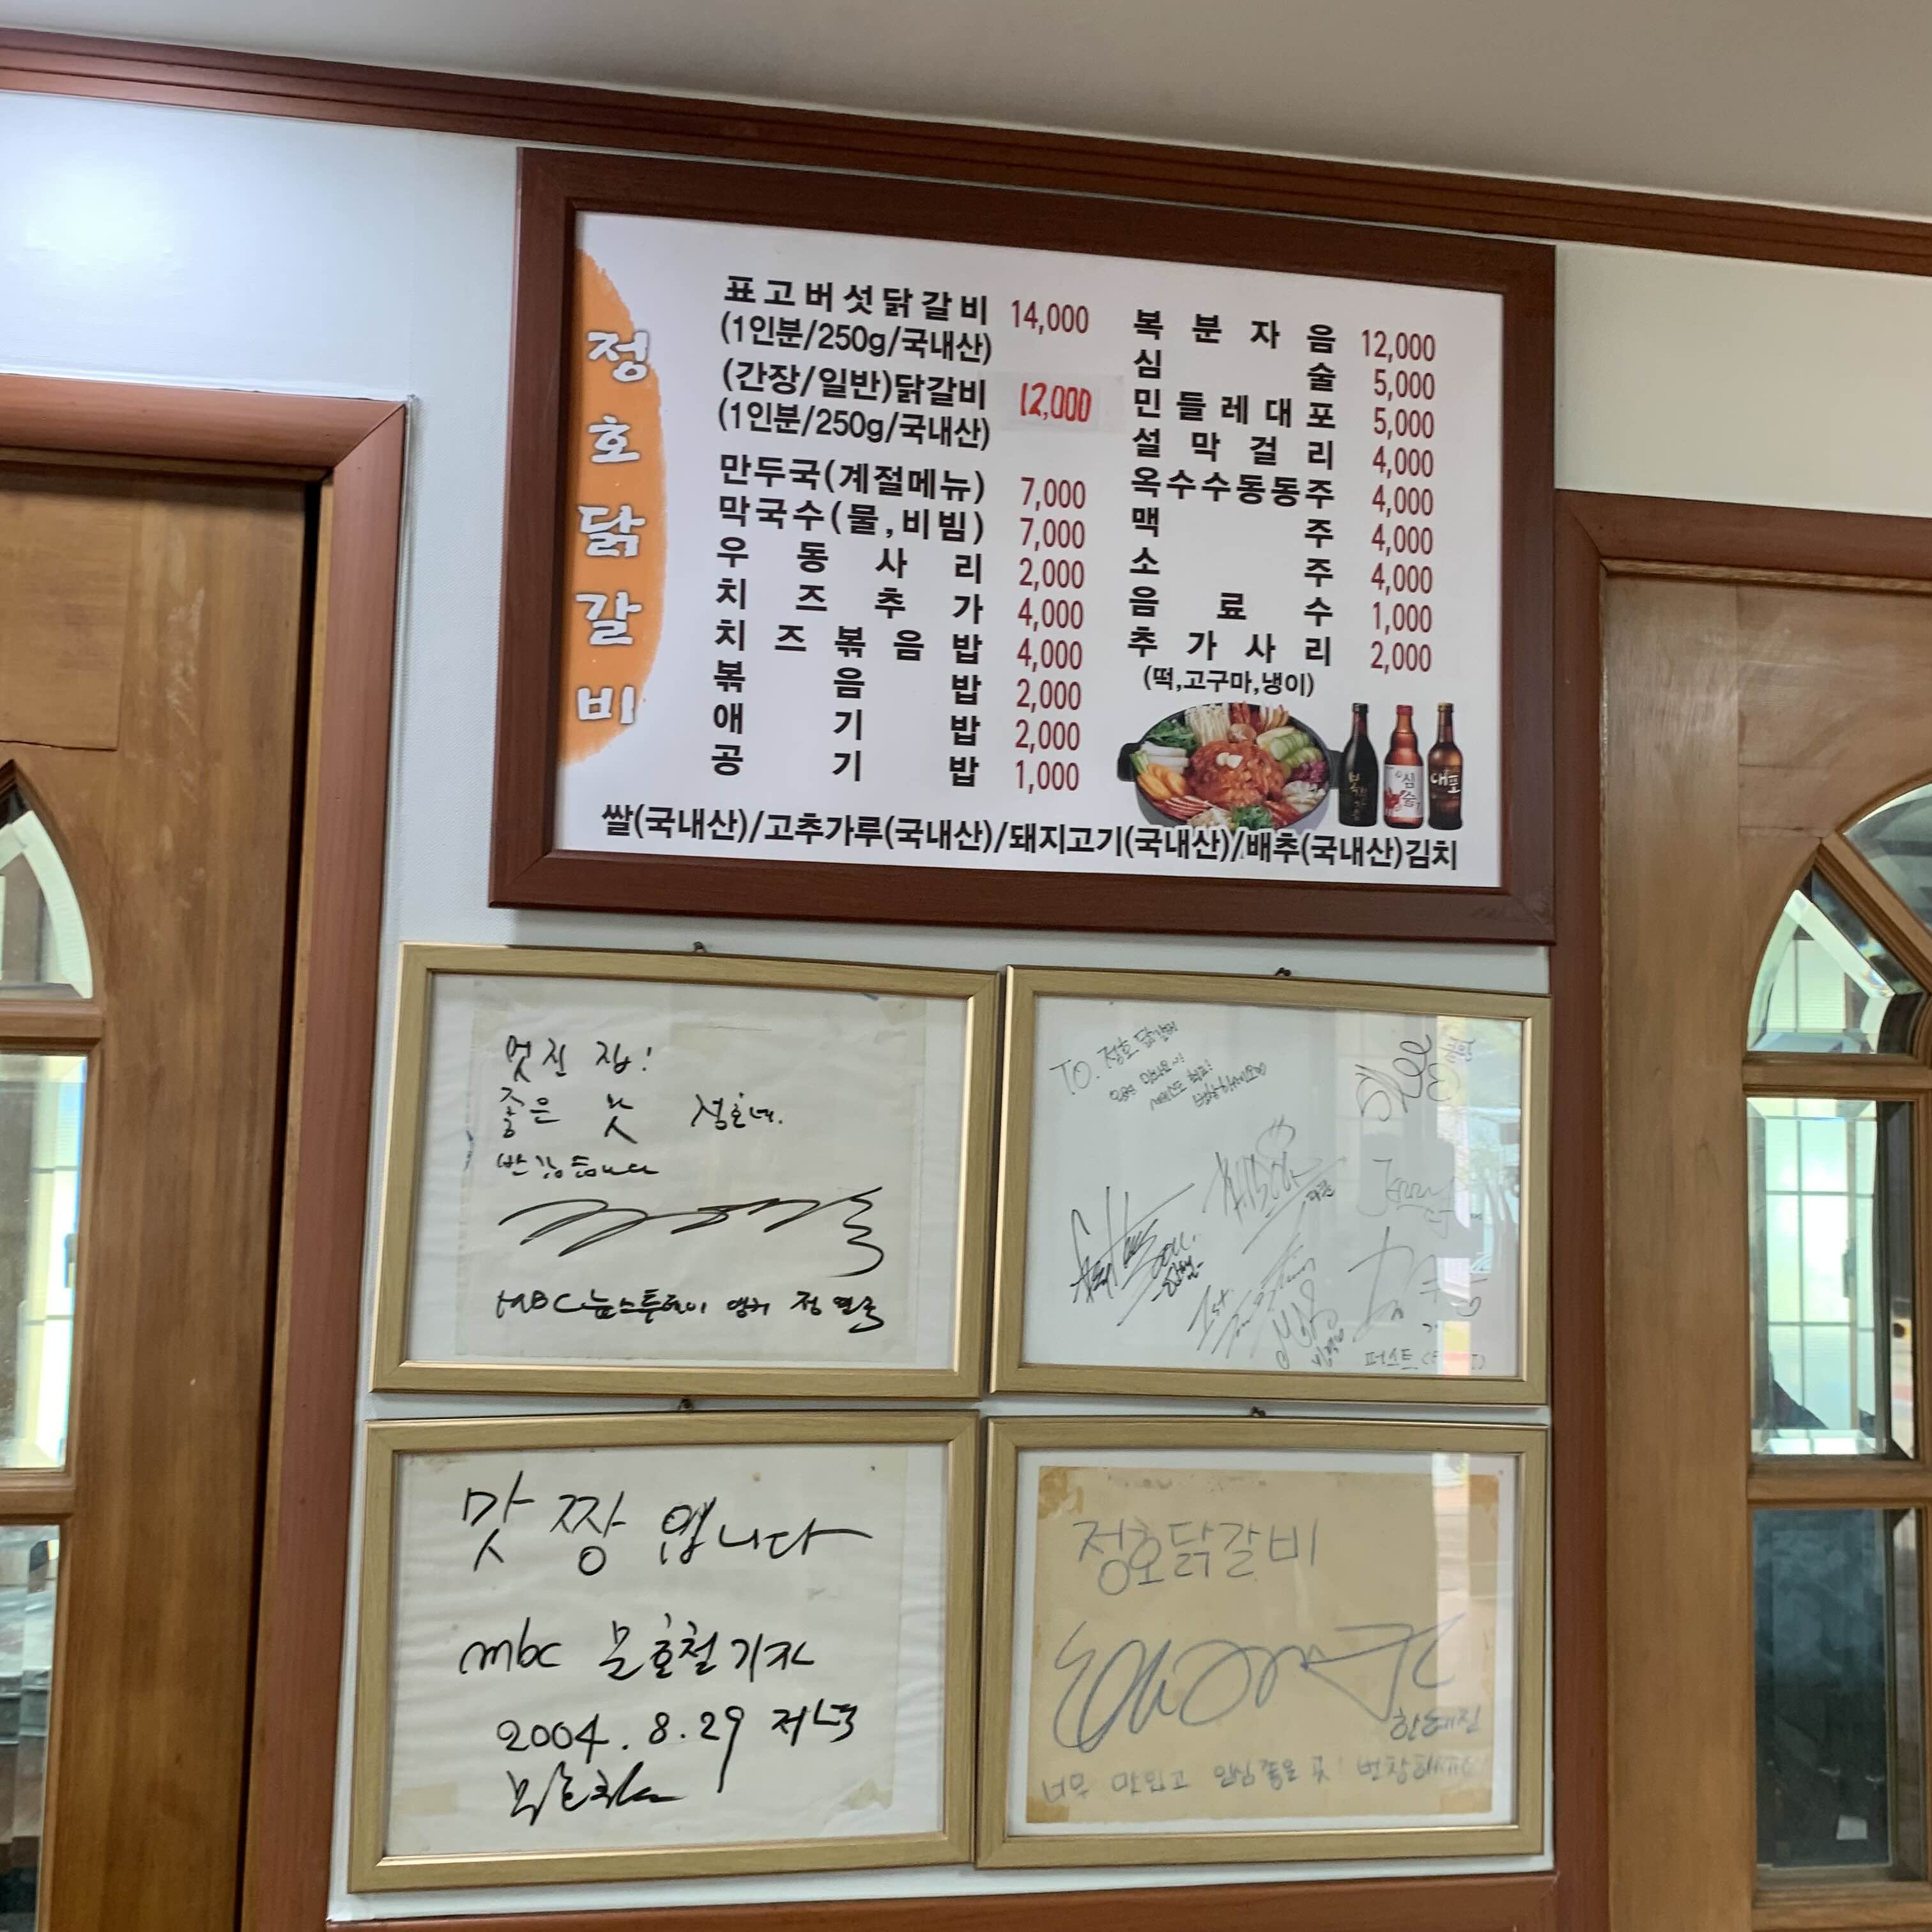 정호닭갈비
표고버섯닭갈비 14,000
(1인분/250g/국내산)
(간장/일반)닭갈비 12,000
(1인분/250g/국내산)
만두국(계절메뉴) 7,000
막국수(물,비빔) 7,000
우동사리 2,000
치즈추가 4,000
치즈볶음밥 4,000
볶음밥 2,000
애기밥 2,000
공기밥 1,000
복분자음 12,000
심술 5,000
민들레대포 5,000
설막걸리 4,000
옥수수동동주 4,000
맥주 4,000
소주 4,000
음료수 1,000
추가사리 2,000
(떡,고구마,냉이)
심술
대포
쌀(국내산)/고추가루(국내산)/돼지고기(국내산)/배추(국내산)김치
멋진 집!
좋은 맛 정호네.
반갑습니다
MBC 뉴스투데이 앵커
TO. 정호 닭갈비
1st
퍼스트
맛 짱 입니다
mbc 문호철 기자
2004. 8. 29 저녁
정호닭갈비
한혜진
너무 맛있고 인심 좋은 곳! 번창하세요